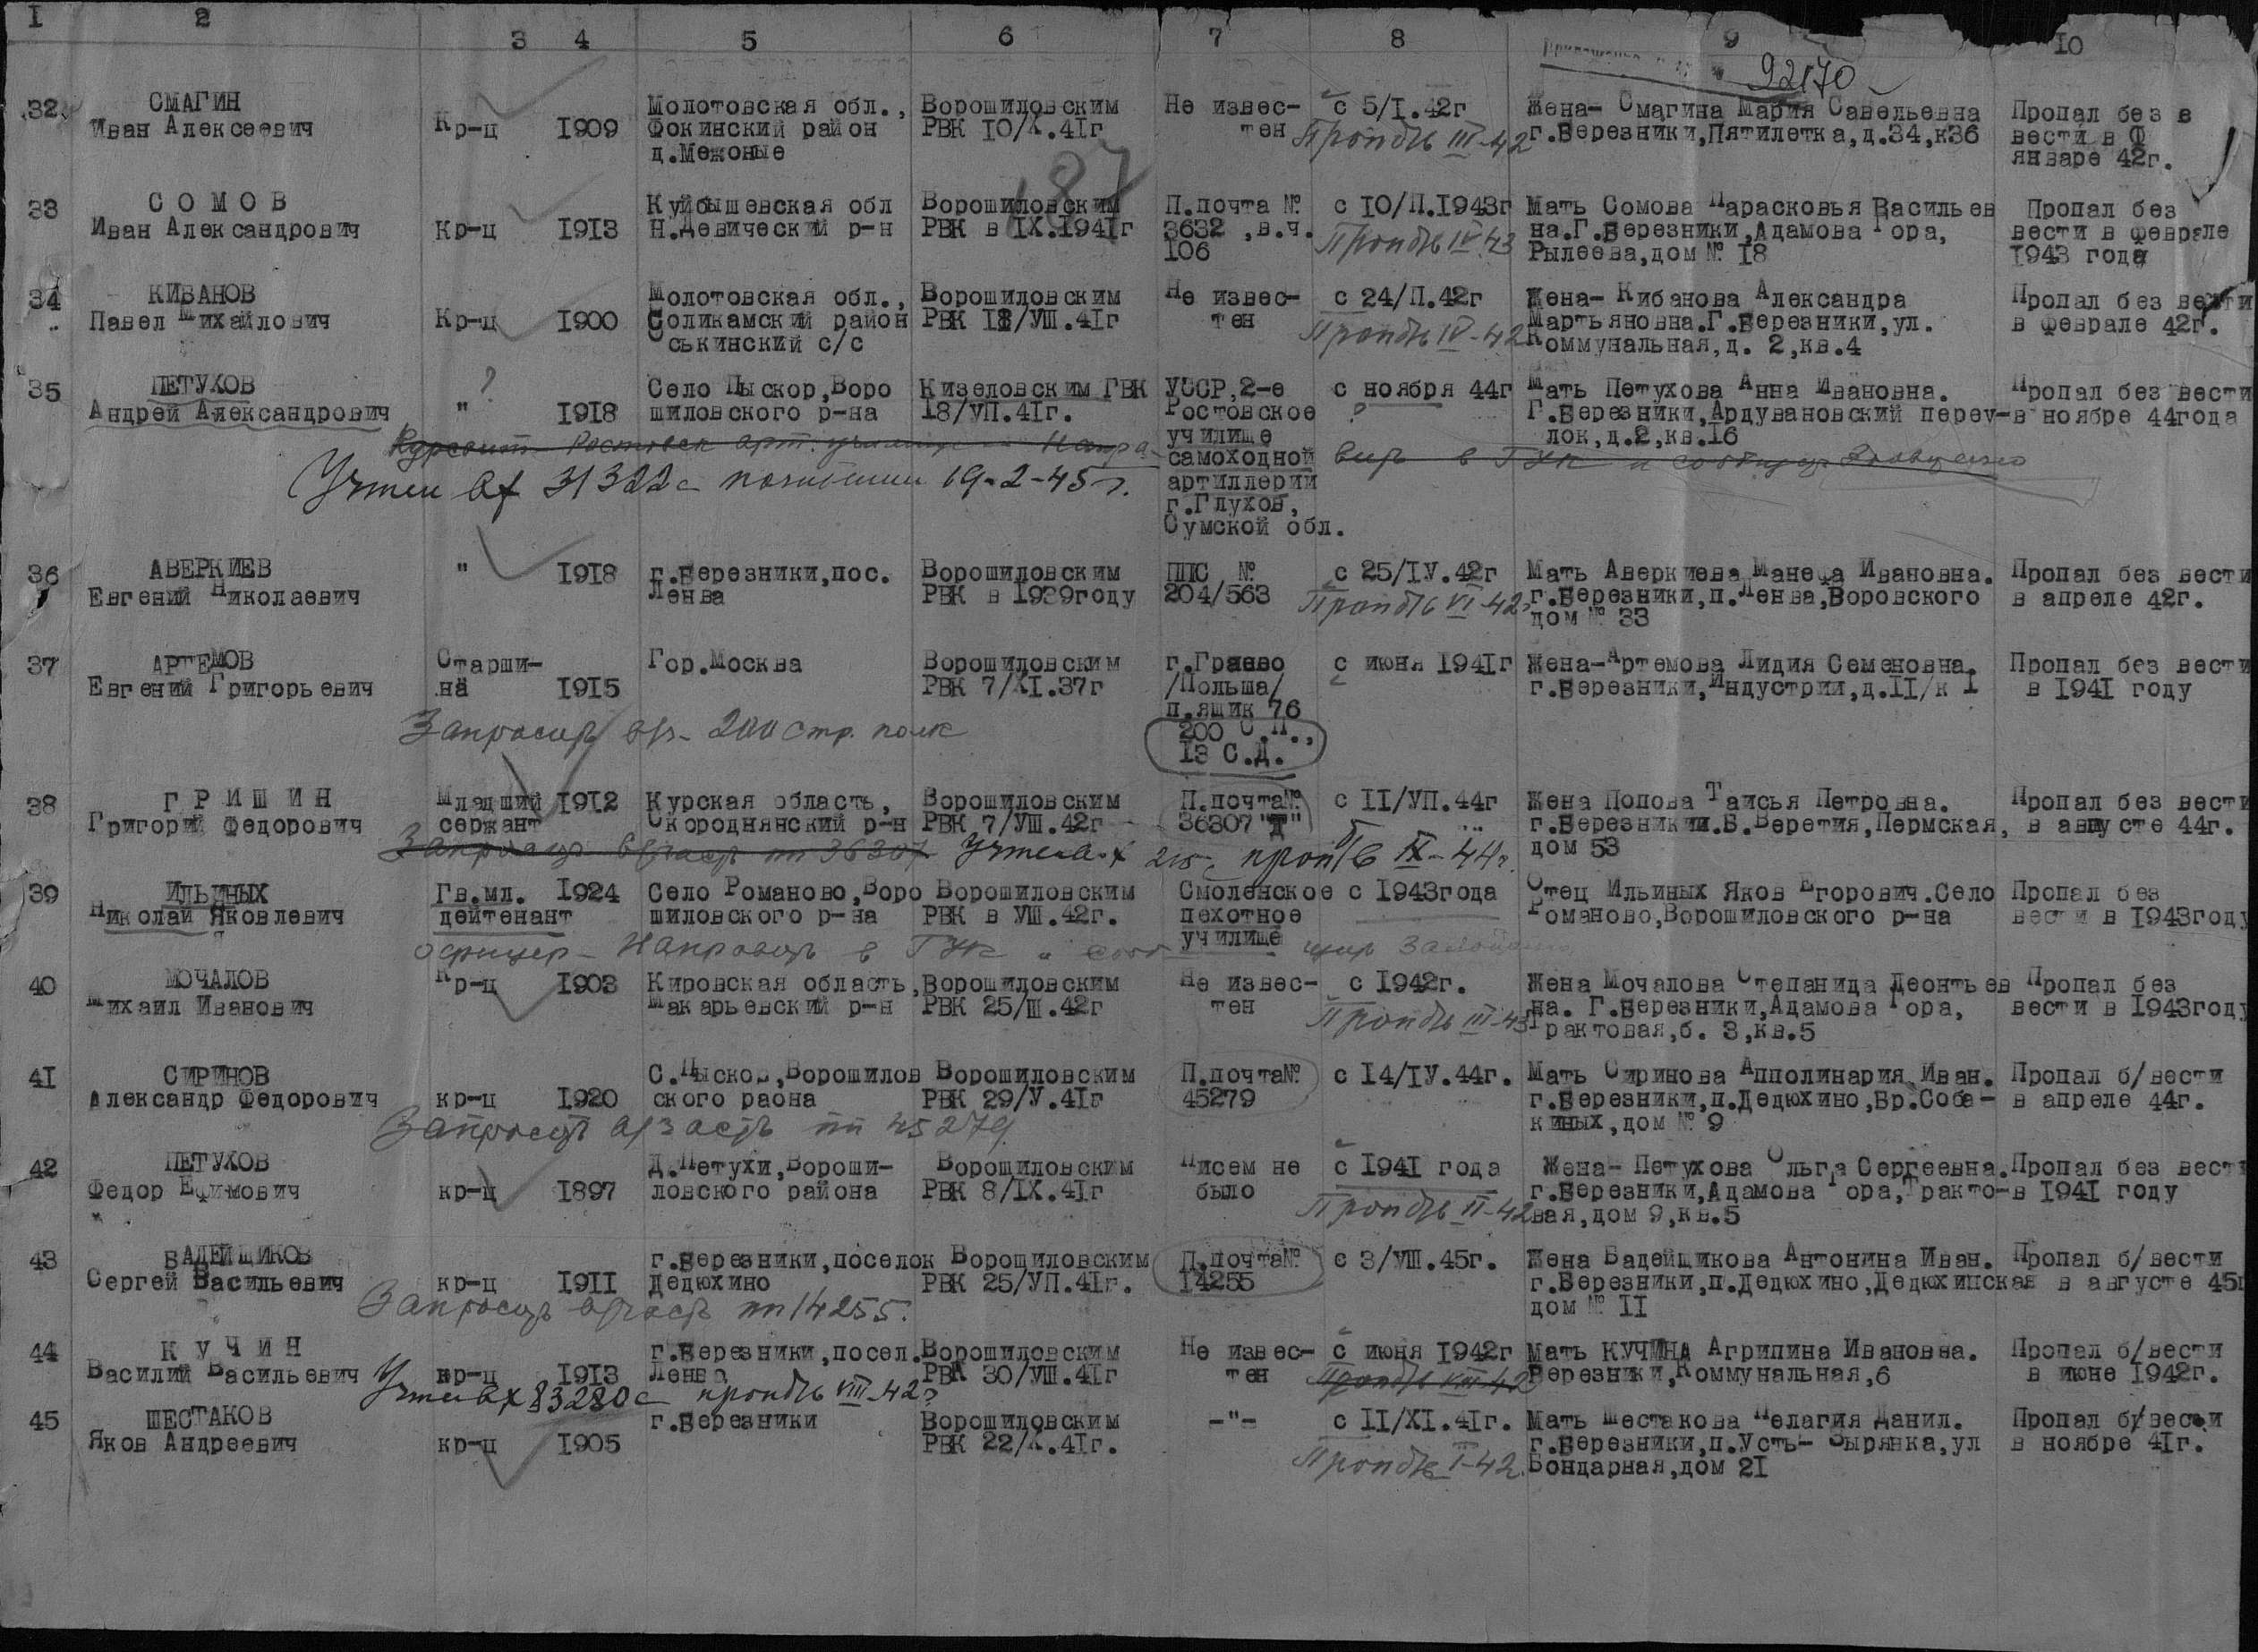 I 2 3 4 5 6 7 8 9 10
92170
32 СМАГИН Иван Алексеевич Кр-ц 1909 Молотовская обл., Фокинский район д.Межовые Ворошиловским РВК 10/X.41г Не извес- тен с 5/I.42г Пропбв III-42 Жена- Смагина Мария Савельевна г.Березники,Пятилетка,д.34,к36 Пропал без в вести в Ф январе 42г.
187
33 С О М О В Иван Александрович Кр-ц 1913 Куйбышевская обл Н.Девический р-н Ворошиловским РВК в IX.1941г П.почта № 3632 ,в.ч. 106 с 10/П.1943г Пропбв IV-43 Мать Сомова Парасковья Васильев на.Г.Березники,Адамова Гора, Рылеева,дом № 18 Пропал без вести в феврале 1943 года
34 КИБАНОВ Павел Михайлович Кр-ц 1900 Молотовская обл., Соликамский район Ськинский с/с Ворошиловским РВК 18/УШ.41г Не извес- тен с 24/П.42г Пропбв IV-42 Жена- Кибанова Александра Мартьяновна.Г.Березники,ул. Коммунальная,д. 2,кв.4 Пропал без вести в феврале 42г.
35 ПЕТУХОВ Андрей Александрович ? " 1918 Село Пыскор,Воро шиловского р-на Кизеловским ГВК 18/УП.41г. УССР,2-е Ростовское училище самоходной артиллерии г.Глухов, Сумской обл. с ноября 44г ? Мать Петухова Анна Ивановна. Г.Березники,Ардувановский переу- лок,д.2,кв.16 Пропал без вести в ноябре 44года
Курсант Ростовск арт. училища Напра-
вить в ГУК и
Учтен вх 31322с погибшим 19-2-45 г.
36 АВЕРКИЕВ Евгений Николаевич " 1918 г.Березники,пос. Ленва Ворошиловским РВК в 1939году ППС № 204/563 с 25/IУ.42г Пропбв VI-42г Мать Аверкиева Манефа Ивановна. г.Березники,п.Ленва,Воровского дом № 33 Пропал без вести в апреле 42г.
37 АРТЕМОВ Евгений Григорьевич Старши- на 1915 Гор.Москва Ворошиловским РВК 7/XI.37г г.Граево /Польша/ п.ящик 76 200 С.П., 13 С.Д. с июня 1941г Жена-Артемова Лидия Семеновна. г.Березники,Индустрии,д.II/к I Пропал без вести в 1941 году
Запросить в/ч- 200 стр. полк
38 Г Р И Ш И Н Григорий Федорович Младший сержант 1912 Курская область, Скороднянский р-н Ворошиловским РВК 7/УШ.42г П.почта№ 36307"Д" с II/УП.44г Жена Попова Таисья Петровна. г.Березникии.В.Веретия,Пермская, дом 53 Пропал без вести в августе 44г.
Запросить в/часть пп 36307 Учтен вх пропбв IX-44г.
39 ИЛЬИНЫХ Николай Яковлевич Гв.мл. лейтенант 1924 Село Романово,Воро шиловского р-на Ворошиловским РВК в УШ.42г. Смоленское пехотное училище с 1943года Отец Ильиных Яков Егорович.Село Романово,Ворошиловского р-на Пропал без вести в 1943году
офицер- Направить в ГУК и
40 МОЧАЛОВ Михаил Иванович Кр-ц 1903 Кировская область, Макарьевский р-н Ворошиловским РВК 25/Ш.42г Не извес- тен с 1942г. Пропбв III-43 Жена Мочалова Степанида Леонтьев на. Г.Березники,Адамова Гора, Трактовая,б. 3,кв.5 Пропал без вести в 1943году
41 СИРИНОВ Александр Федорович кр-ц 1920 С.Пыскор,Ворошилов ского раона Ворошиловским РВК 29/У.41г П.почта№ 45279 с 14/IУ.44г. Мать Сиринова Апполинария Иван. г.Березники,п.Дедюхино,Бр.Соба- киных,дом № 9 Пропал б/вести в апреле 44г.
Запросить в/часть пп 45279
42 ПЕТУХОВ Федор Ефимович кр-ц 1897 Д.Петухи,Вороши- ловского района Ворошиловским РВК 8/IX.41г Писем не было с 1941 года Пропбв II-42 Жена- Петухова Ольга Сергеевна. г.Березники,Адамова Гора,Тракто- вая,дом 9,кв.5 Пропал без вести в 1941 году
43 БАДЕЙЩИКОВ Сергей Васильевич кр-ц 1911 г.Березники,поселок Дедюхино Ворошиловским РВК 25/УП.41г. П.почта№ 14255 с 3/УШ.45г. Жена Бадейщикова Антонина Иван. г.Березники,п.Дедюхино,Дедюхинская дом № II Пропал б/вести в августе 45г
Запросить в/часть пп 14255.
44 К У Ч И Н Василий Васильевич кр-ц 1913 г.Березники,посел. Ленва Ворошиловским РВК 30/УШ.41г Не извес- тен с июня 1942г Пропбв VIII-42 Мать КУЧИНА Агрипина Ивановна. Березники,Коммунальная,6 Пропал б/вести в июне 1942г.
Учтен вх 83280с пропбв VIII-42г
45 ШЕСТАКОВ Яков Андреевич кр-ц 1905 г.Березники Ворошиловским РВК 22/X.41г. -"- с II/XI.41г. Пропбв I-42. Мать Шестакова Пелагия Данил. г.Березники,п.Усть- Зырянка,ул Бондарная,дом 21 Пропал б/вести в ноябре 41г.